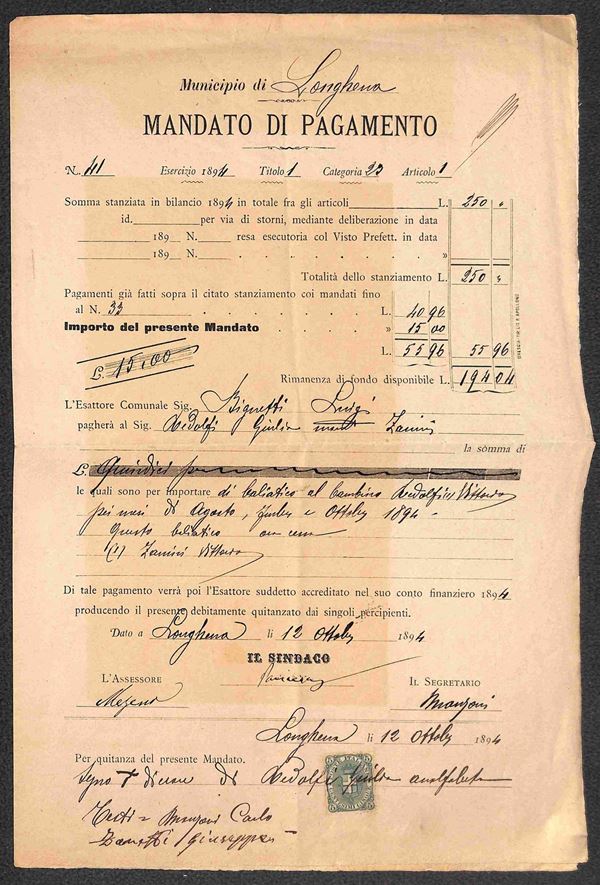 Municipio di Longhena
MANDATO DI PAGAMENTO
N. 41 Esercizio 1894 Titolo 1 Categoria 23 Articolo 1
Somma stanziata in bilancio 1894 in totale fra gli articoli L. 250 "
id. per via di storni, mediante deliberazione in data
189 N. resa esecutoria col Visto Prefett. in data
189 N. »
Totalità dello stanziamento L. 250 "
Pagamenti già fatti sopra il citato stanziamento coi mandati fino
al N. 33 L. 40 96
Importo del presente Mandato » 15 00
L. 55 96 55 96
£. 15.00
Rimanenza di fondo disponibile L. 194 04
L'Esattore Comunale Sig. Luigi
pagherà al Sig. Redolfi Giulia Zanini
la somma di
£. Quindici
le quali sono per importare di baliatico al bambino Redolfi Vittorio
pei mesi di Agosto, e Ottobre 1894 -
questo baliatico
(1) Zanini Vittorio
Di tale pagamento verrà poi l'Esattore suddetto accreditato nel suo conto finanziero 1894
producendo il presente debitamente quitanzato dai singoli percipienti.
Dato a Longhena li 12 Ottobre 1894
IL SINDACO
L'ASSESSORE IL SEGRETARIO
Manzoni
Longhena li 12 Ottobre 1894
Per quitanza del presente Mandato.
Segno + di croce di Redolfi Giulia analfabeta
Testi = Manzoni Carlo
Zanetti Giuseppe